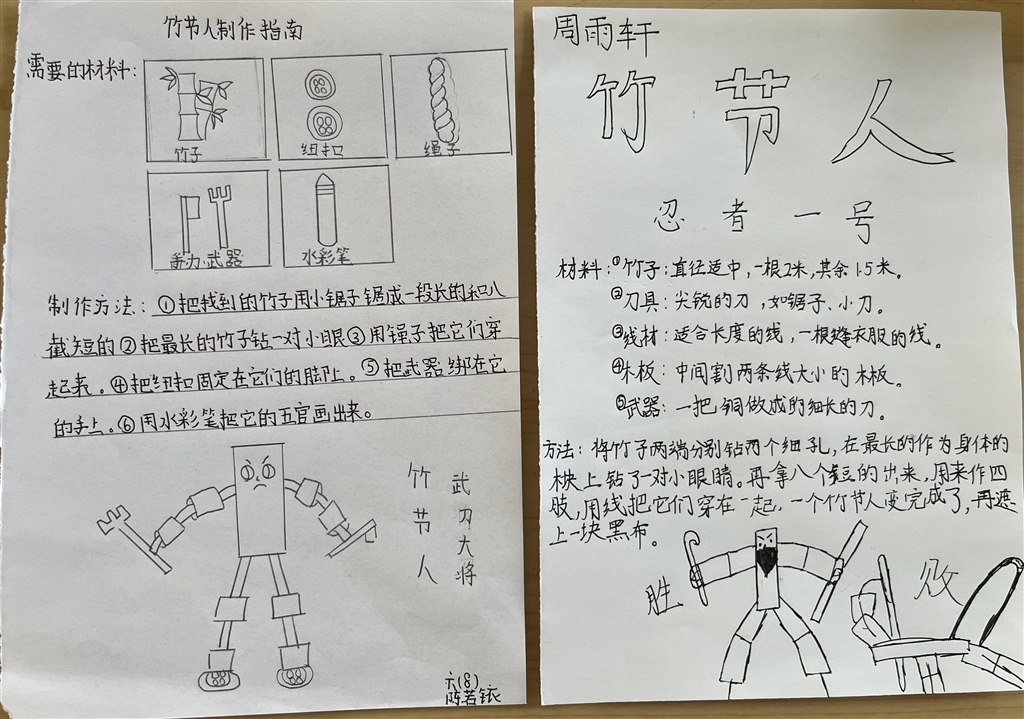 竹节人制作指南
需要的材料:
竹子
纽扣
绳子
武器
水彩笔
制作方法:①把找到的竹子用小锯子锯成一段长的和八
截短的②把最长的竹子钻一对小眼③用绳子把它们穿
起来。④把纽扣固定在它们的脚上。⑤把武器绑在它
的手上。⑥用水彩笔把它的五官画出来。
竹节人
武力大将
六(8)
陈若铱
周雨轩
竹节人
忍者一号
材料:①竹子:直径适中,一根2米,其余1.5米。
②刀具:尖锐的刀,如锯子、小刀。
③线材:适合长度的线,一根缝衣服的线。
④木板:中间割两条线大小的木板。
⑤武器:一把铜做成的细长的刀。
方法:将竹子两端分别钻两个细孔,在最长的作为身体的
木块上钻了一对小眼睛。再拿八个短的出来,用来作四
肢,用线把它们穿在一起,一个竹节人变完成了,再遮
上一块黑布。
胜
败